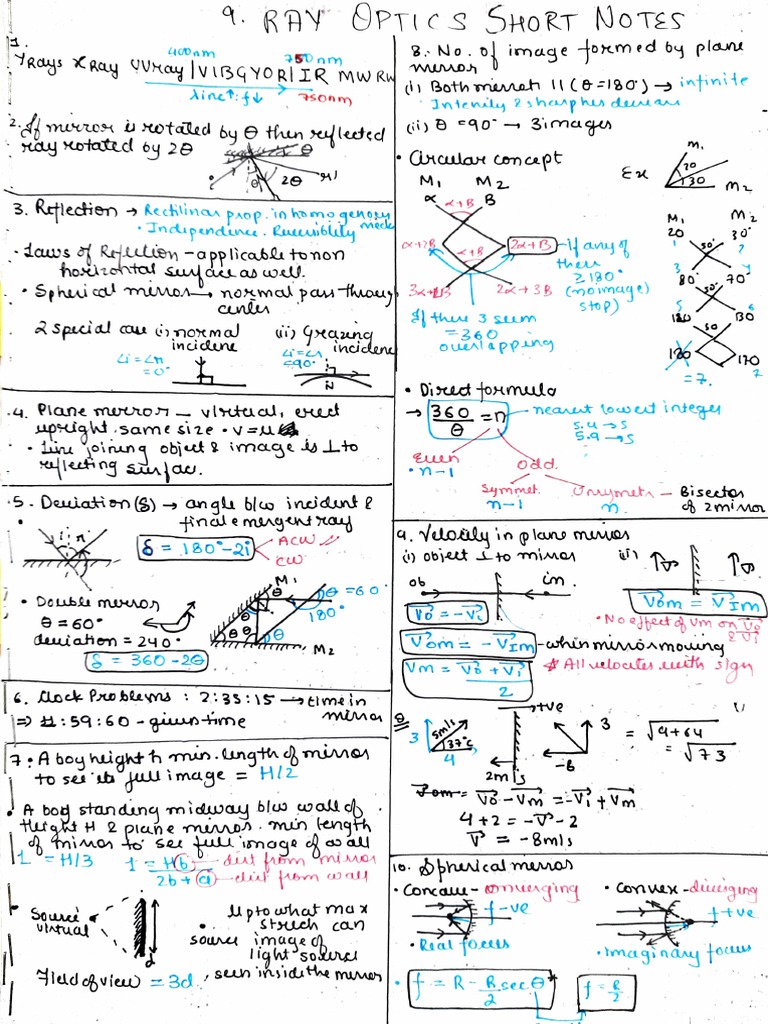 9. RAY OPTICS SHORT NOTES
1.
γRays XRay UVray | VIBGYOR | IR MW RW
400nm
750nm
λinc↑ : f↓
750nm
2. If mirror is rotated by θ then reflected
ray rotated by 2θ
θ
2θ
θ
3. Reflection → Rectilinar prop. in homogenous
• Independence. Reversiblety
• Laws of Reflection - applicable to non
horizontal surface as well.
• Spherical mirror → normal pass through
center
2 special case (i) normal
incidence
(ii) Grazing
incidence
∠i = ∠r
= 0°
∠i = ∠r
= 90°
N
4. Plane mirror — virtual, erect
upright. same size • v = u
• Line joining object & image is ⊥ to
reflecting surface.
5. Deviation (δ) → angle b/w incident &
final emergent ray
i r
δ = 180° - 2i
ACW
CW
• Double mirror
θ = 60°
deviation = 240°
δ = 360 - 2θ
M1
θ = 60
180°
θ θ
θ
M2
6. Clock Problems : 2:35:15 → time in
mirror
⇒ 11:59:60 - given time
7. • A boy height h min. length of mirror
to see its full image = H/2
• A boy standing midway b/w wall of
height H & plane mirror. min length
of mirror to see full image of wall
l = H/3
l = Hb → dist from mirror
2b + a → dist from wall
Source
virtual
d
• Upto what max
stretch can
source image of
light source
seen inside the mirror
Field of view = 3d.
8. No. of image formed by plane
mirror
(i) Both mirror 11 (θ = 180°) → infinite
• Intenity & sharpnes decrease
(ii) θ = 90° → 3 images
• Circular concept
M1 M2
α B
α+B
α+2B
α+B
2α+B
3α+2B
2α+3B
If any of
these
≥ 180°
(no image)
stop)
If there 3 seem
= 360
overlapping
Ex
M1
20
30
M2
M1 M2
20 30°
50°
80° 70°
50°
130 130
50
180 170
= 7.
• Direct formula
→ 360 = n → nearest lowest integer
θ
5.4 → 5
5.9 → 5
Even
• n-1
odd.
Symmet.
n-1
Unsymetr
n.
Bisector
of 2 mirror
9. Velocity in plane mirror
(i) object ⊥ to mirror
(ii)
ob
im
Vo = -Vi
Vom = VIm
• No effect of Vm on Vo
& Vi
Vom = -VIm - when mirror moving
Vm = Vo + Vi
2
* All velocites with sign
θ
3
5m/s
37°
4
+ve
2m/s
3
= √4+64
= √73
Vom = Vo - Vm = -Vi + Vm
4 + 2 = -V - 2
V = -8m/s
10. Spherical mirror
• Concave - converging
f -ve
• Real focus
• Convex - diverging
f +ve
• Imaginary focus
• f = R - R secθ
2
f = R
2